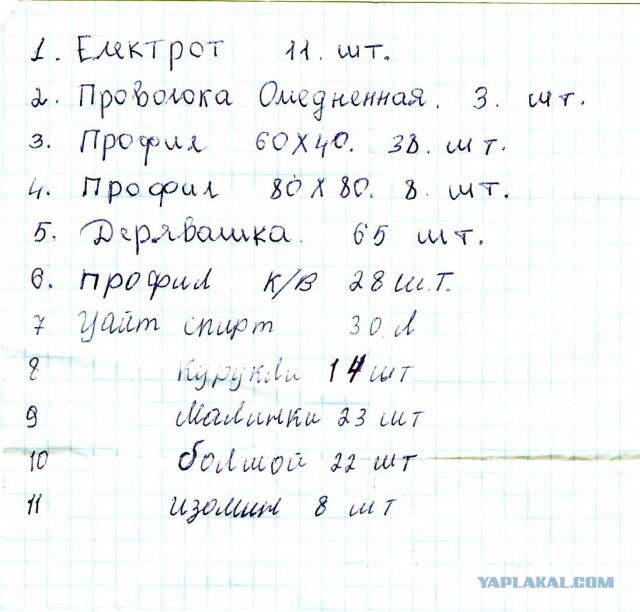 1. Електрот 11. шт.
2. Проволока Омедненная. 3. шт.
3. Профил 60X40. 38. шт.
4. Профил 80X80. 8. шт.
5. Дерявашка. 65 шт.
6. профил к/в 28 ш.т.
7 Уайт спирт 30 л
8 Курукли 14 шт
9 Малинки 23 шт
10 болшой 22 шт
11 изомин 8 шт
YAPLAKAL.COM